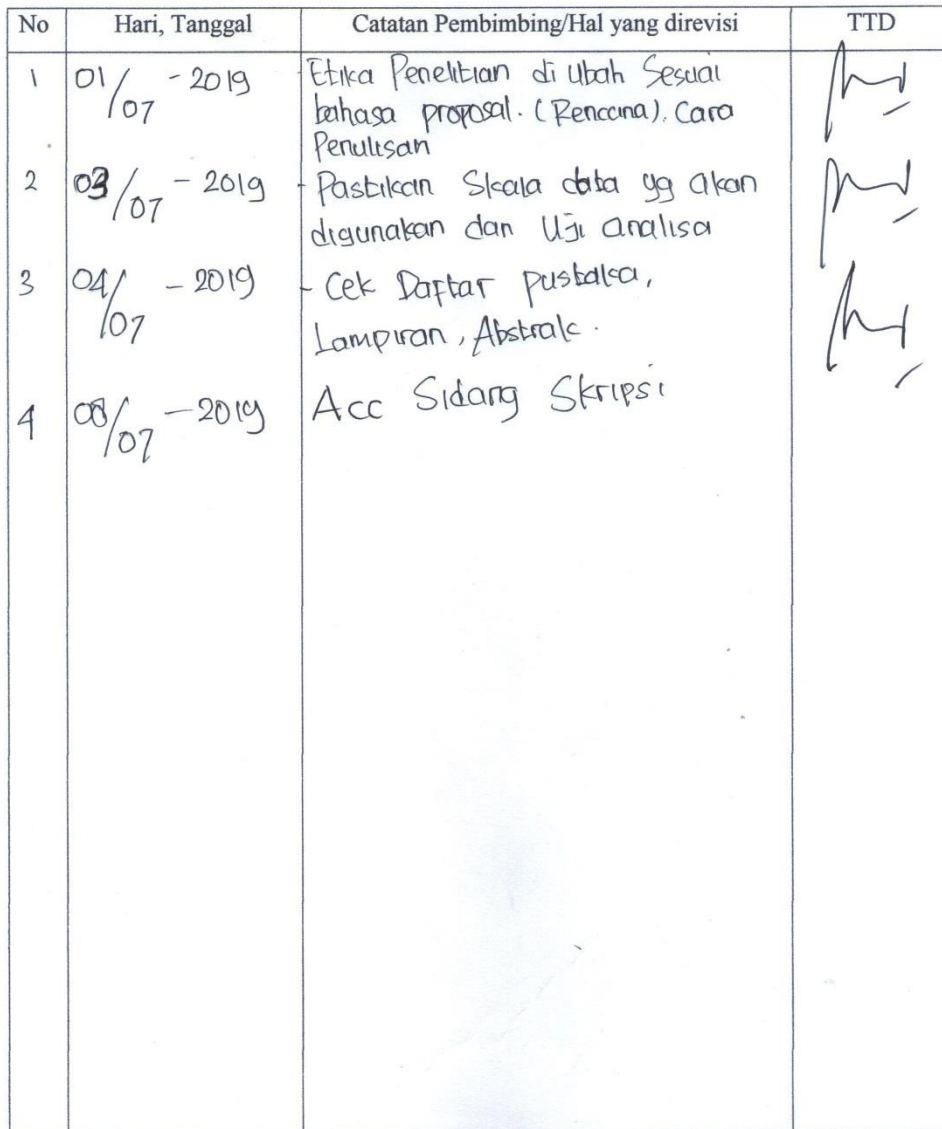 No Hari, Tanggal Catatan Pembimbing/Hal yang direvisi TTD
1 01/07 - 2019 - Etika Penelitian di ubah Sesuai
bahasa proposal. (Rencana). Cara
Penulisan
2 03/07 - 2019 - Pastikan Skala data yg akan
digunakan dan Uji analisa
3 04/07 - 2019 - Cek Daftar pustaka,
Lampiran, Abstrak.
4 08/07 - 2019 Acc Sidang Skripsi